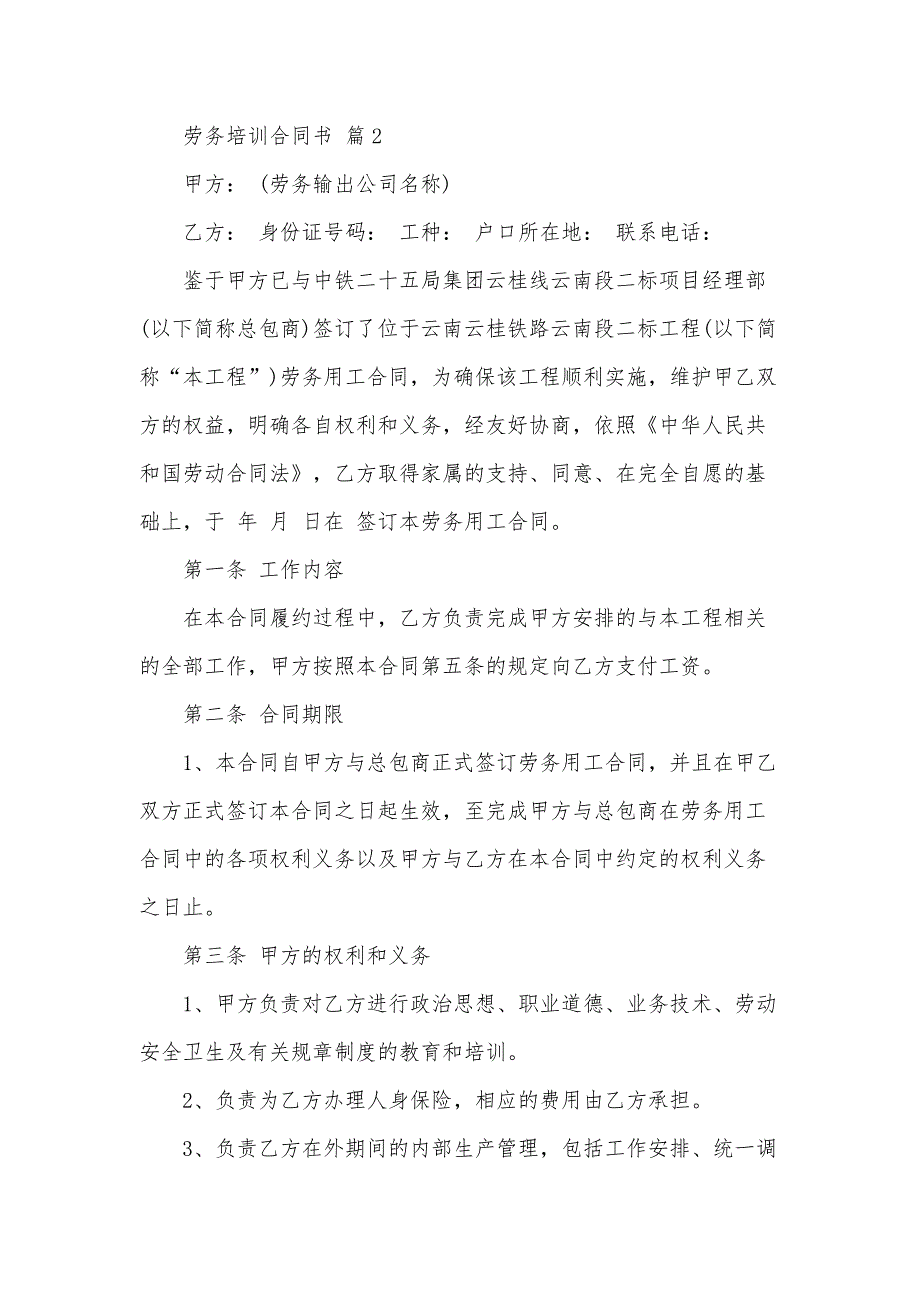 劳务培训合同书 篇2
甲方： (劳务输出公司名称)
乙方： 身份证号码： 工种： 户口所在地： 联系电话：
鉴于甲方已与中铁二十五局集团云桂线云南段二标项目经理部
(以下简称总包商)签订了位于云南云桂铁路云南段二标工程(以下简
称“本工程”)劳务用工合同，为确保该工程顺利实施，维护甲乙双
方的权益，明确各自权利和义务，经友好协商，依照《中华人民共
和国劳动合同法》，乙方取得家属的支持、同意、在完全自愿的基
础上，于 年 月 日在 签订本劳务用工合同。
第一条 工作内容
在本合同履约过程中，乙方负责完成甲方安排的与本工程相关
的全部工作，甲方按照本合同第五条的规定向乙方支付工资。
第二条 合同期限
1、本合同自甲方与总包商正式签订劳务用工合同，并且在甲乙
双方正式签订本合同之日起生效，至完成甲方与总包商在劳务用工
合同中的各项权利义务以及甲方与乙方在本合同中约定的权利义务
之日止。
第三条 甲方的权利和义务
1、甲方负责对乙方进行政治思想、职业道德、业务技术、劳动
安全卫生及有关规章制度的教育和培训。
2、负责为乙方办理人身保险，相应的费用由乙方承担。
3、负责乙方在外期间的内部生产管理，包括工作安排、统一调